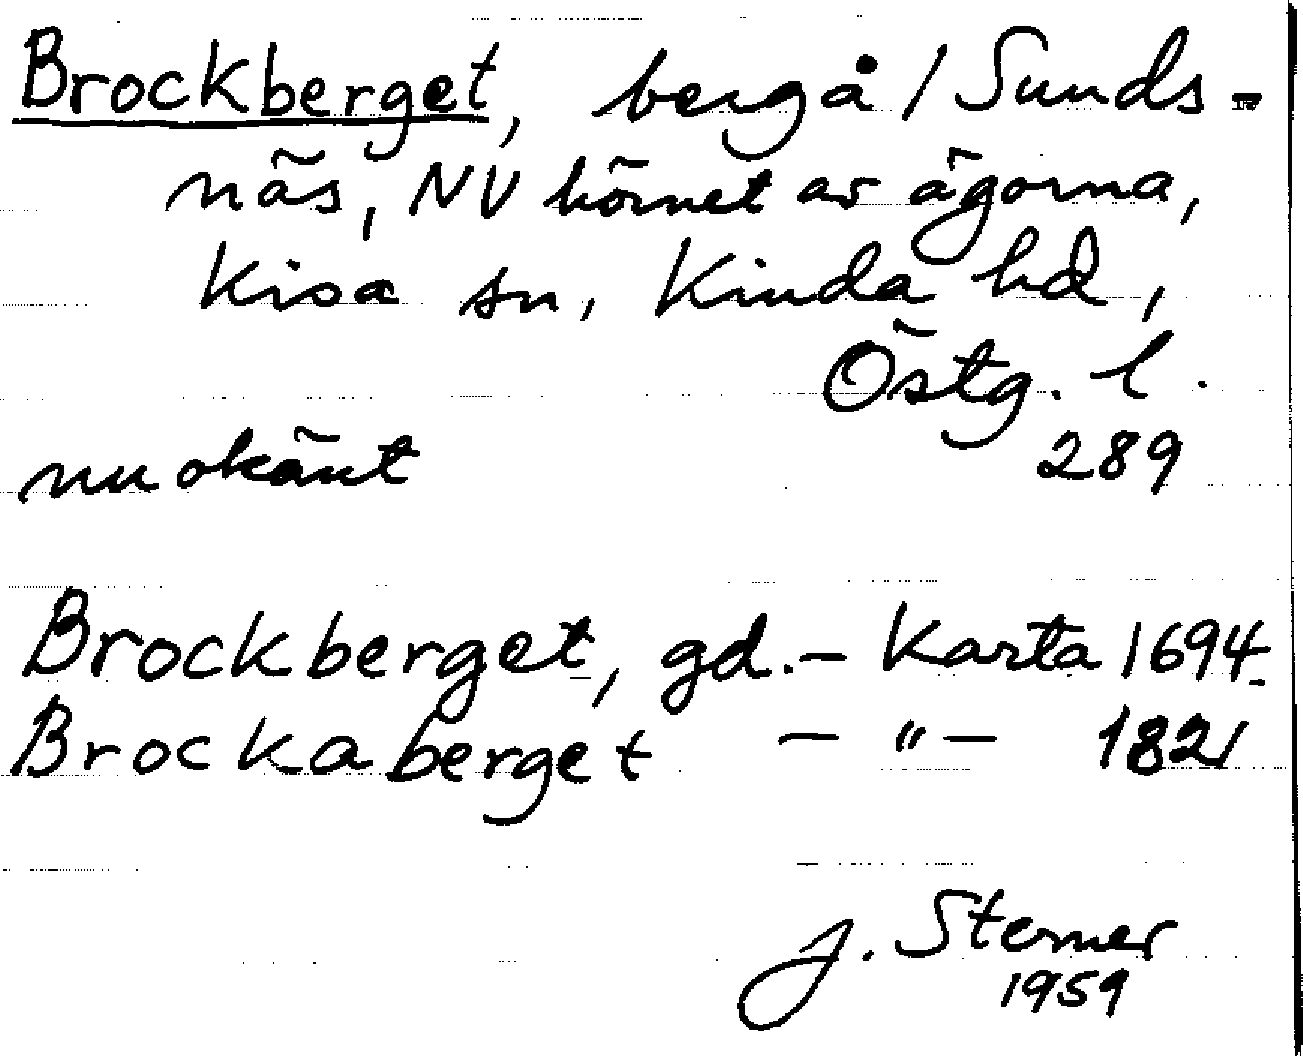 Brockberget, berg å / Sunds-
näs, NV hörnet av ägorna,
Kisa sn, Kinda hd,
Östg. l.
nu okänt 289
Brockberget, gd. - Karta 1694.
Brockaberget - " - 1821
J. Sterner
1959